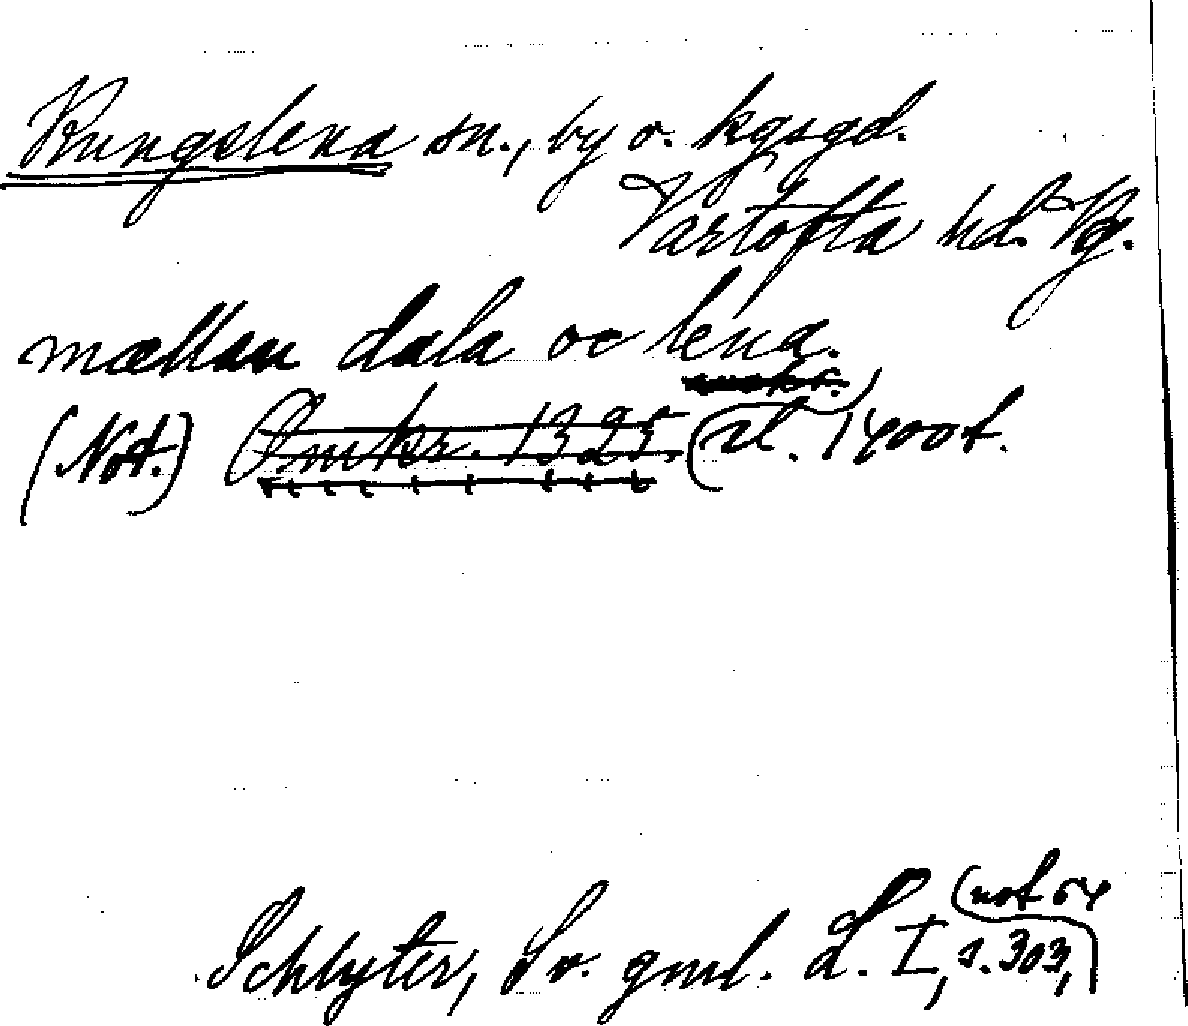 Kungslena sn., by o. kgsgd.
Vartofta hd. Vg.
mællan dala oc lena.
(Not.) Omkr. 1325. sl. 1400t.
Schlyter, Sv. gml. L. I, s. 303,
not 54